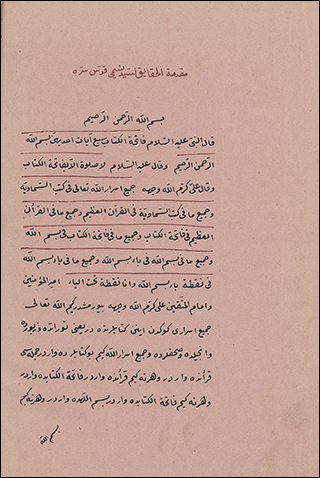 مقدمة الحقايق لسيد نسيمى قدس سره
بسم الله الرحمن الرحيم
قال النبى عليه السلام فاتحة الكتاب سبع آيات احديهن بسم الله
الرحمن الرحيم وقال عليه السلام لا صلوة الا بفاتحة الكتاب
وقال على كرم الله وجهه جميع اسرار الله تعالى فى كتب السماوية
وجميع ما فى كتب السماوية فى القرآن العظيم وجميع ما فى القرآن
العظيم فى فاتحة الكتاب وجميع ما فى فاتحة الكتاب فى بسم الله
وجميع ما فى بسم الله فى باء بسم الله وجميع ما فى باء بسم الله
فى نقطة باء بسم الله وانا نقطة تحت الباء امير المؤمنين
وامام المتقين على كرم الله وجهه بيورمشدر كيم الله تعالى
جميع اسرارى كوكدن اينن كتابلرنده در يعنى توراتده وزبورده
وانجيلده وصحفلرده وجميع اسرار الله كيم بو كتابلرده واردر جمله سى
قرآنده واردر وهر نه كيم قرآنده واردر فاتحة الكتابده واردر
وهر نه كيم فاتحة الكتابده واردر بسم اللهده واردر وهر نه كيم